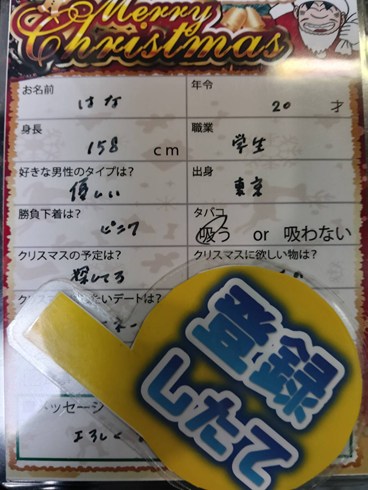 Merry
Christmas
お名前 はな 年令 20 才
身長 158 cm 職業 学生
好きな男性のタイプは? 優しい 出身 東京
勝負下着は? ピンク タバコ 吸う or 吸わない
クリスマスの予定は? 探してる クリスマスに欲しい物は?
たいデートは?
登録
したって
ッセージ
エろしく